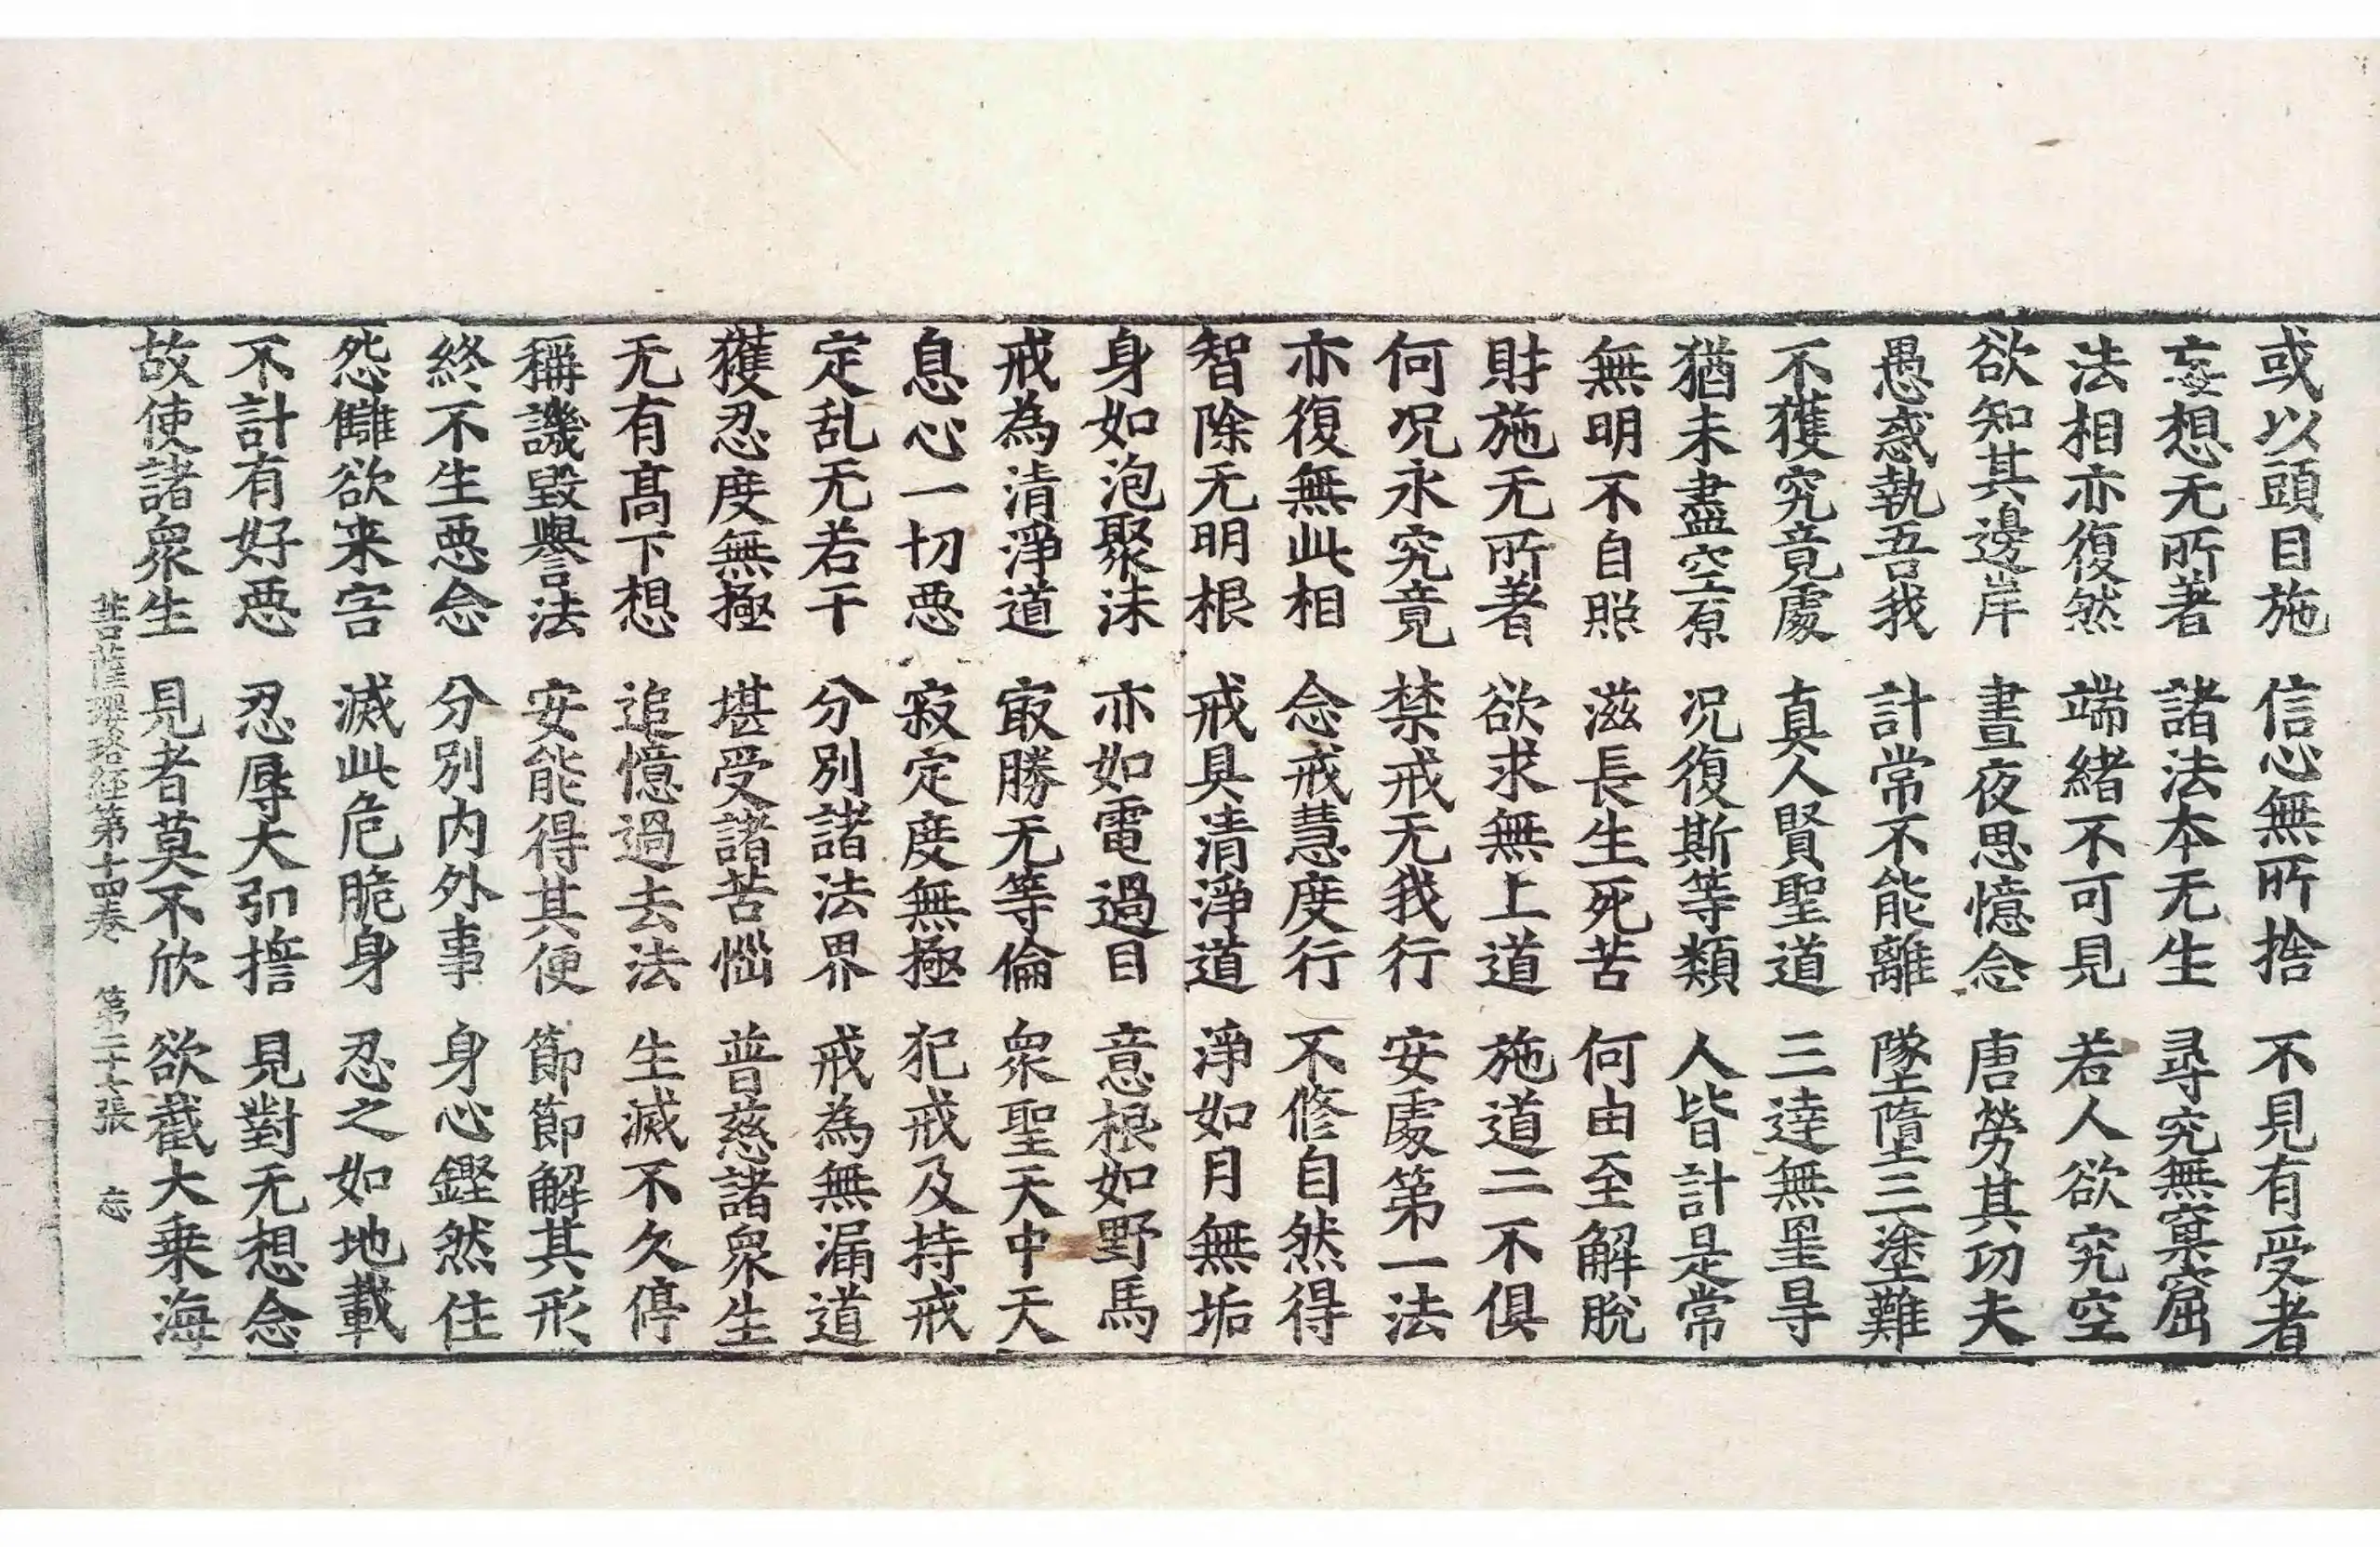 或以頭目施　信心無所捨　不見有受者
妄想无所著　諸法本无生　尋究無窠窟
法相亦復然　端緒不可見　若人欲究空
欲知其邊岸　晝夜思憶念　唐勞其功夫
愚惑執吾我　計常不能離　墜墮三塗難
不獲究竟處　真人賢聖道　三達無罣㝵
猶未盡空原　况復斯等類　人皆計是常
無明不自照　滋長生死苦　何由至解脫
財施无所著　欲求無上道　施道二不俱
何况永究竟　禁戒无我行　安處第一法
亦復無此相　念戒慧度行　不修自然得
智除无明根　戒具清淨道　淨如月無垢
身如泡聚沫　亦如電過目　意根如野馬
戒為清淨道　㝡勝无等倫　衆聖天中天
息心一切惡　寂定度無極　犯戒及持戒
定乱无若干　分別諸法界　戒為無漏道
獲忍度無極　堪受諸苦惱　普慈諸衆生
无有髙下想　追憶過去法　生滅不久停
稱譏毀譽法　安能得其便　節節解其形
終不生惡念　分別内外事　身心鏗然住
怨讎欲来害　滅此危脆身　忍之如地載
不計有好惡　忍辱大弘擔　見對无想念
故使諸衆生　見者莫不欣　欲截大乗海
菩薩瓔珞経第十四卷　第二十七張　忘